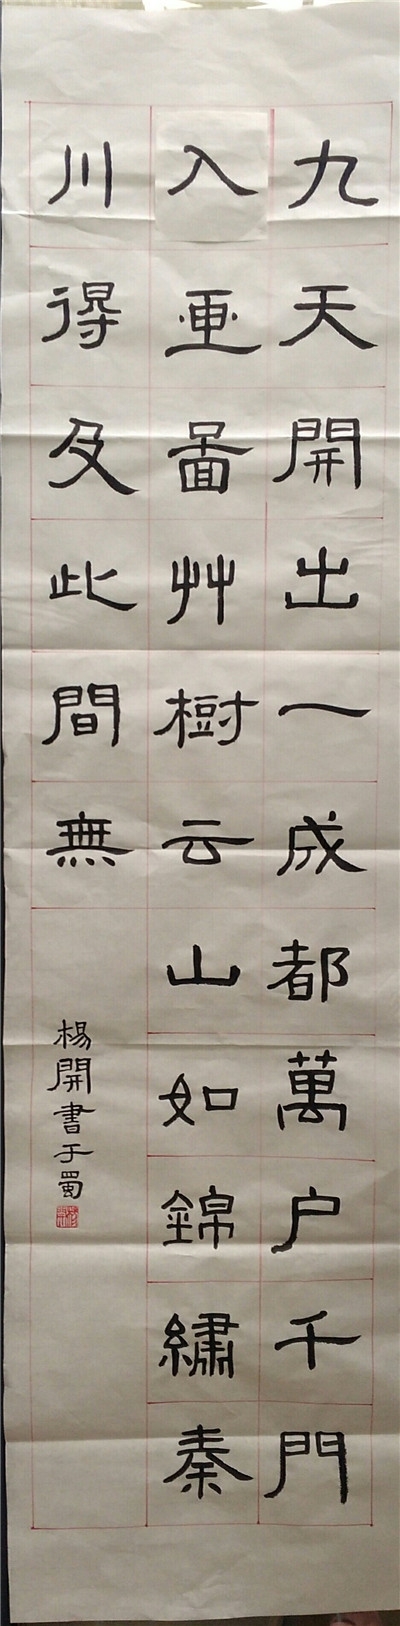 九天開出一成都萬户千門
入畫啚艸樹云山如錦繡秦
川得及此間無
楊開書于蜀